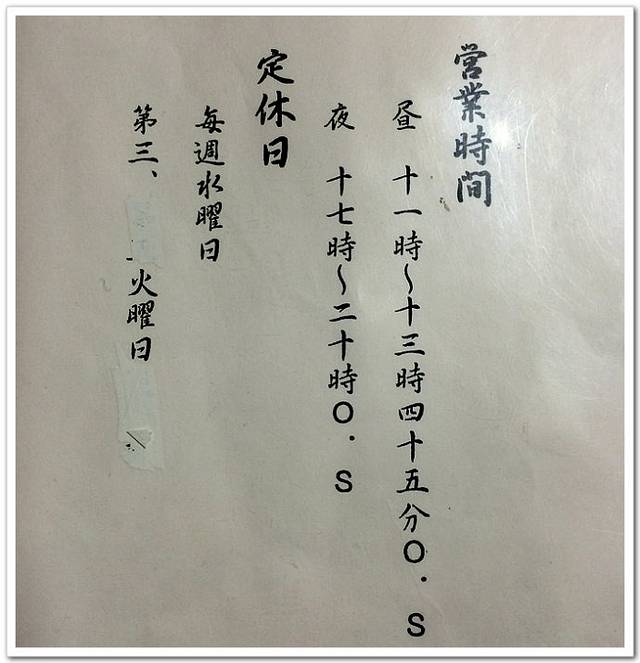 営業時間
昼 十一時〜十三時四十五分O.S
夜 十七時〜二十時O.S
定休日
毎週水曜日
第三、火曜日